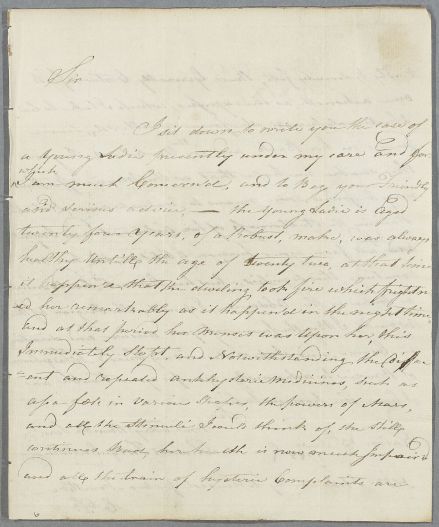 Sir
I sit down to write you the case of
a Young Ladie presently under my care and for
which
I am much Concerned, and to Beg your Friendly
and serious advice, — the Young Ladie is Aged
twenty four Years, of a Robust, make, was always
healthy Untill the age of twenty two at that time
it happened that the dwelling took fire which fright'n
-ed her remarkably as it happened in the night time
and at that period her Menses was Upon her, this
Immediately Stopt, and Notwithstanding the differ
-ent and repeated antihysteric Medicines, such as
asa-foet: in various Shapes, the powers of Mars,
and all the Stimuli I could think of, she Still
continues Bad, her health is now much Impair'd
and all the train of hysteric Complaints are